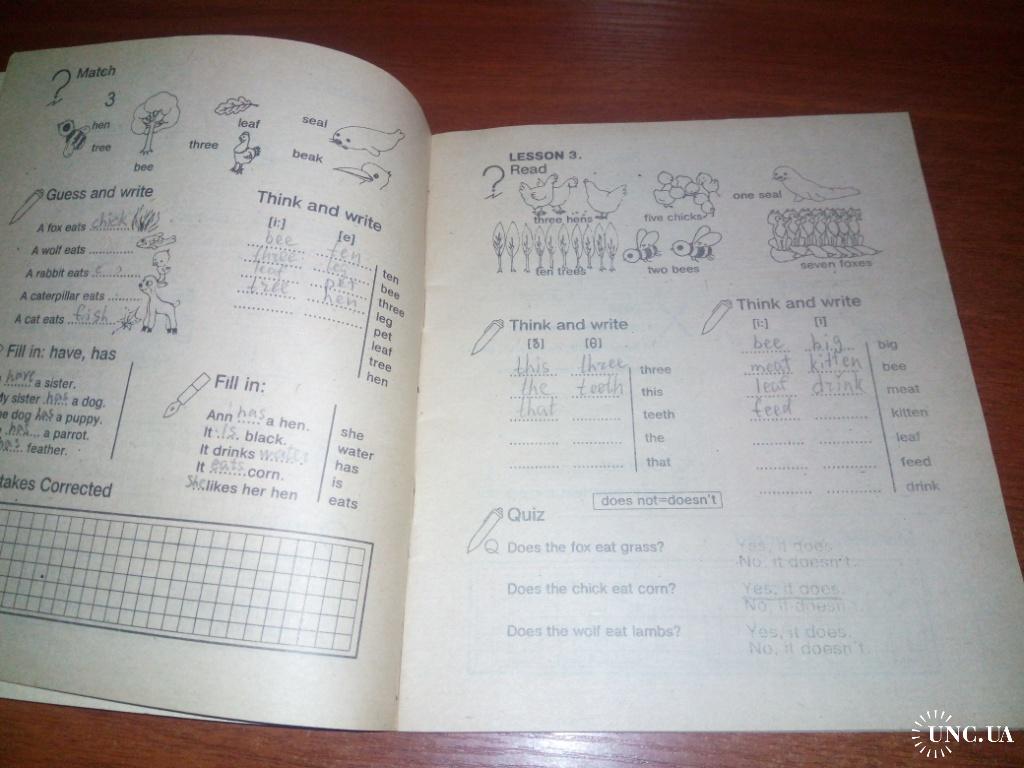 Match
3
hen
tree
bee
leaf
three
seal
beak
Guess and write
A fox eats chick
A wolf eats ..........
A rabbit eats
A caterpillar eats ........
A cat eats fish
Think and write
[i:] [e]
bee ten
three leg
leaf
tree hen
ten
bee
three
leg
pet
leaf
tree
hen
Fill in: have, has
have a sister.
My sister has a dog.
he dog has a puppy.
has a parrot.
has feather.
takes Corrected
Fill in:
Ann has a hen.
It is black.
It drinks water
It eats corn.
She likes her hen
she
water
has
is
eats
LESSON 3.
Read
three hens
five chicks
one seal
ten trees
two bees
seven foxes
Think and write
[ð] [θ]
this three
the teeth
that
three
this
teeth
the
that
Think and write
[i:] [i]
bee big
meat kitten
leaf drink
feed
big
bee
meat
kitten
leaf
feed
drink
does not=doesn't
Quiz
Q Does the fox eat grass? Yes, it does.
No, it doesn't.
Does the chick eat corn? Yes, it does.
No, it doesn't.
Does the wolf eat lambs? Yes, it does.
No, it doesn't.
UNC.UA